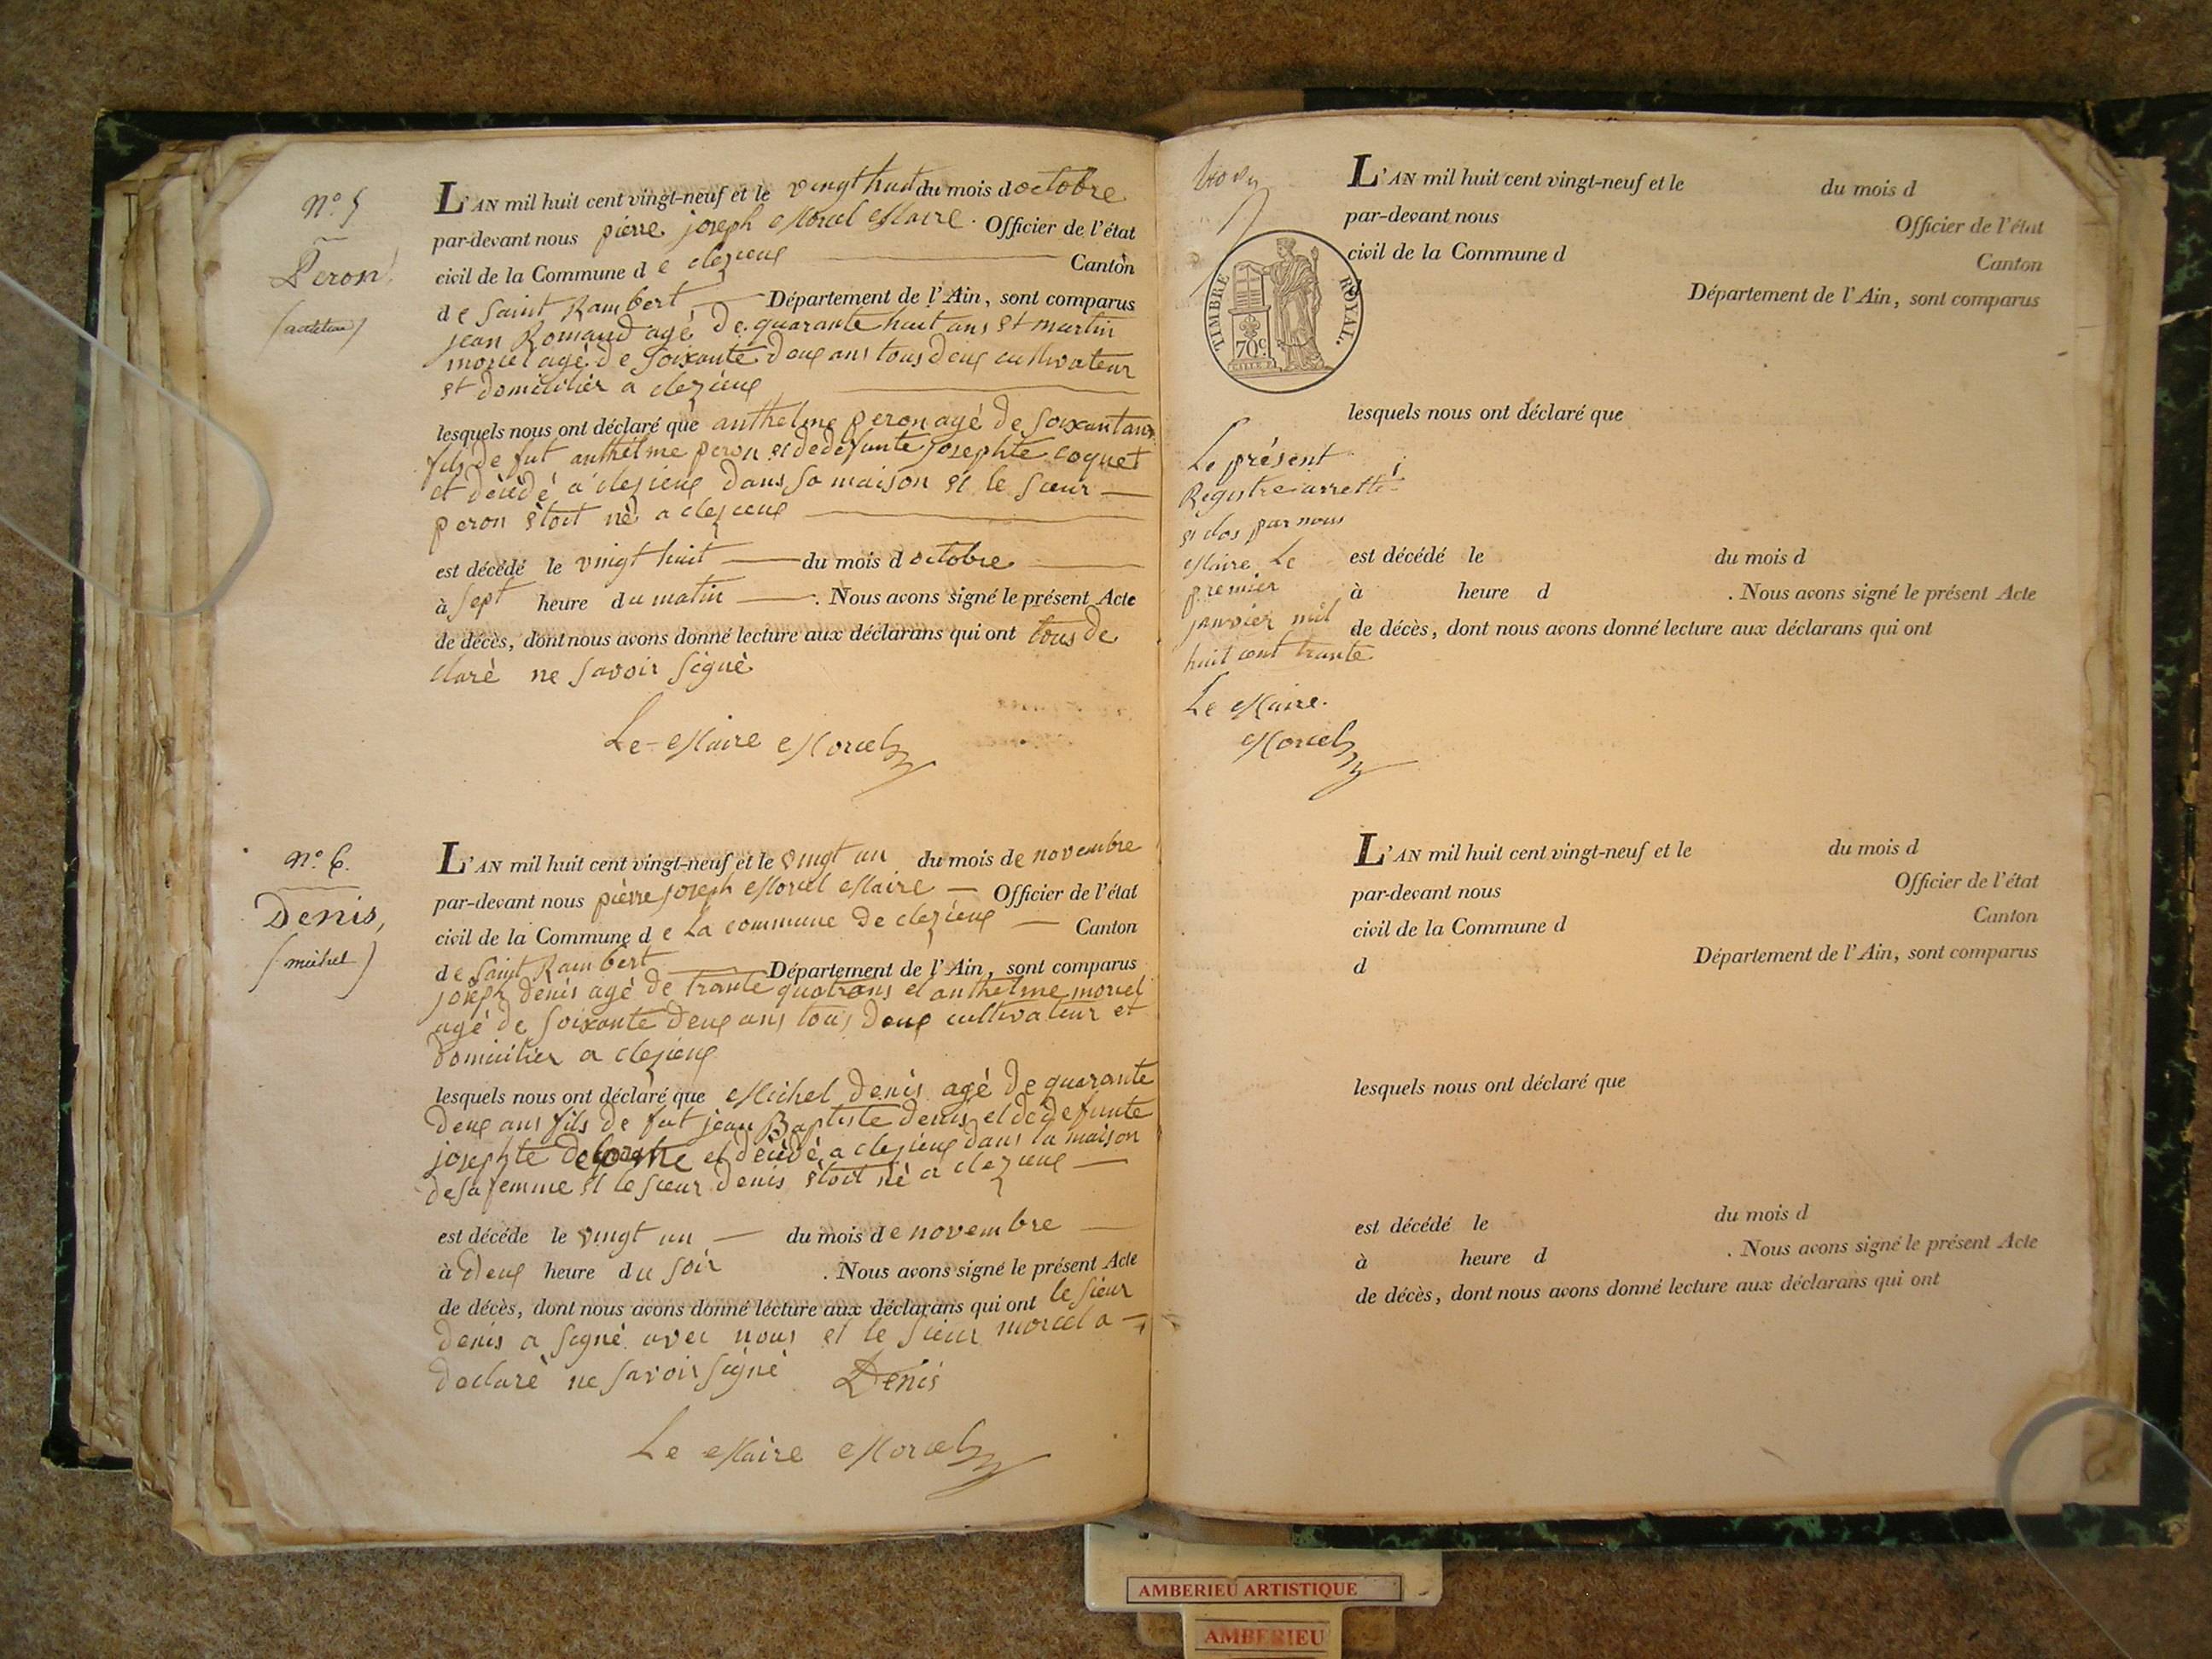 N.º 5
Peron
L'AN mil huit cent vingt-neuf et le vingt huit du mois d octobre
par-devant nous pierre joseph Morcel Maire. Officier de l'état
civil de la Commune d e clezieux Canton
de Saint Rambert Département de l'Ain, sont comparus
jean Romand agé De quarante huit ans et martin
morcel agé de soixante deux ans tous deux cultivateur
et domicilier a clezieux
lesquels nous ont déclaré que anthelme peron agé de soixantans
fils de fut anthelme peron et dedefunte josephte coquet
et décédé a clezieux Dans sa maison et le sieur
peron étoit né a clezieux
est décédé le vingt huit du mois d octobre
à sept heure du matin . Nous avons signé le présent Acte
de décès, dont nous avons donné lecture aux déclarans qui ont tous de
claré ne savoir signé
Le Maire Morcel
N.º 6.
Denis,
(michel)
L'AN mil huit cent vingt-neuf et le vingt un du mois de novembre
par-devant nous pierre joseph Morcel Maire Officier de l'état
civil de la Commune d e La commune De clezieux Canton
de Saint Rambert Département de l'Ain, sont comparus
joseph denis agé de trante quatrans et anthelme morcel
agé de soixante deux ans tous deux cultivateur et
domicilier a clezieux
lesquels nous ont déclaré que Michel Denis agé De quarante
deux ans fils De fut jean Baptiste denis et de defunte
josephte et décédé a clezieux dans la maison
de sa femme et le sieur Denis étoit né a clezieux
est décédé le vingt un du mois de novembre
à deux heure du soir . Nous avons signé le présent Acte
de décès, dont nous avons donné lecture aux déclarans qui ont le sieur
denis a signé avec nous et le sieur morcel a
declaré ne savoir signé Denis
Le Maire Morcel
TIMBRE ROYAL.
70.c
Le présent
Registre arretté
et clos par nous
Maire Le
premier
janvier mil
huit cent trante
Le Maire.
Morcel
L'AN mil huit cent vingt-neuf et le du mois d
par-devant nous Officier de l'état
civil de la Commune d Canton
Département de l'Ain, sont comparus
lesquels nous ont déclaré que
est décédé le du mois d
à heure d . Nous avons signé le présent Acte
de décès, dont nous avons donné lecture aux déclarans qui ont
L'AN mil huit cent vingt-neuf et le du mois d
par-devant nous Officier de l'état
civil de la Commune d Canton
d Département de l'Ain, sont comparus
lesquels nous ont déclaré que
est décédé le du mois d
à heure d . Nous avons signé le présent Acte
de décès, dont nous avons donné lecture aux déclarans qui ont
AMBERIEU ARTISTIQUE
AMBERIEU